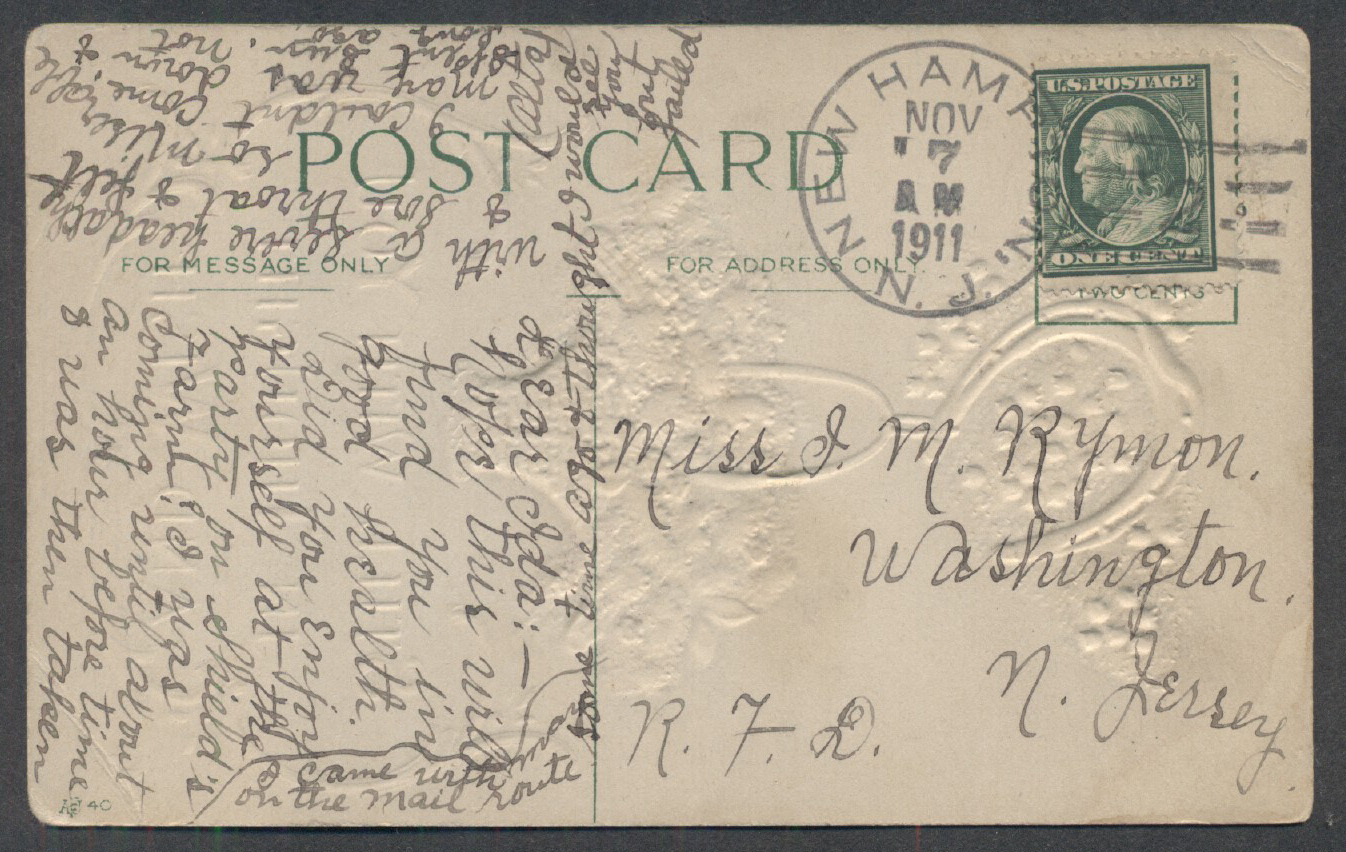 POST CARD
FOR MESSAGE ONLY
FOR ADDRESS ONLY
NEW HAMP
N. J.
NOV
7
AM
1911
U.S. POSTAGE
ONE CENT
TWO CENTS
Miss I. M. Rymon.
Washington.
N. Jersey
R. F. D.
Dear Ida: —
Hope this will
find you in
good health.
Did you enjoy
yourself at the
party on Shield's
farm. I was
coming until about
an hour before time
I was then taken
with a severe headache
& sore throat & felt
so miserable
I couldnt come,
May was down &
spent Sun. not
long ago.
came with
on the mail route
some time ago & thought I would
see
you
but
failed
40